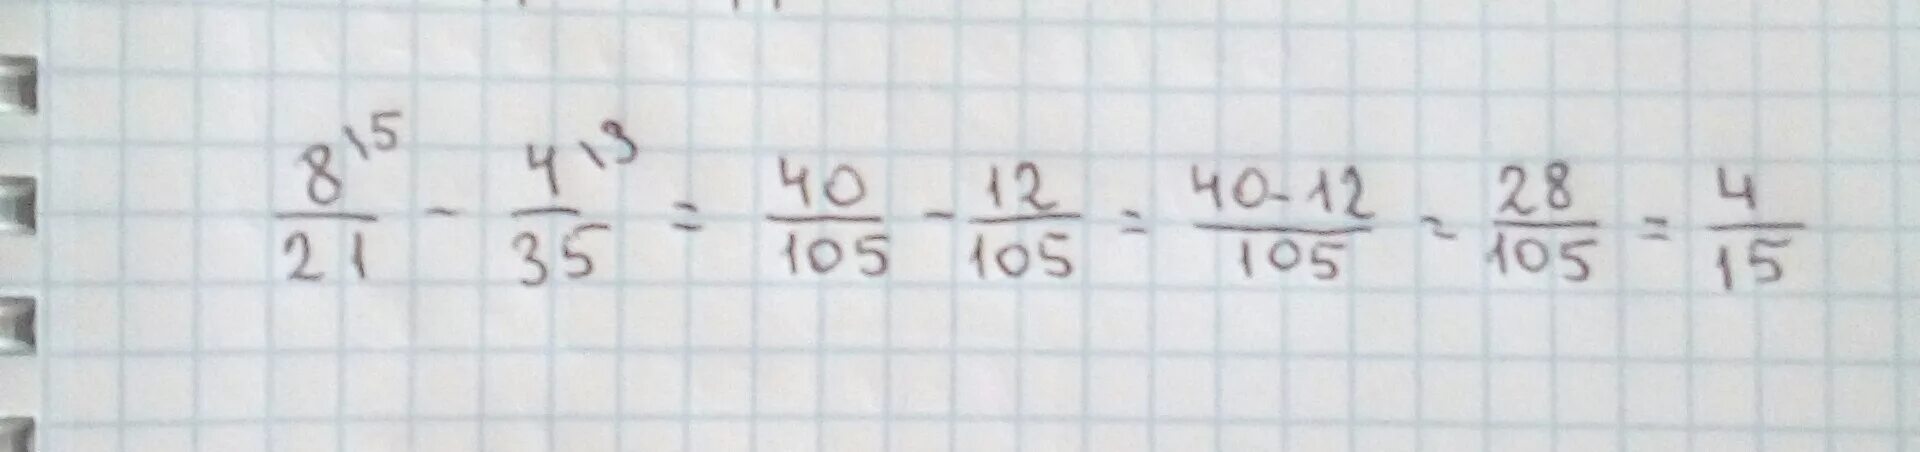 8\5/21 - 4\3/35 = 40/105 - 12/105 = 40-12/105 = 28/105 = 4/15